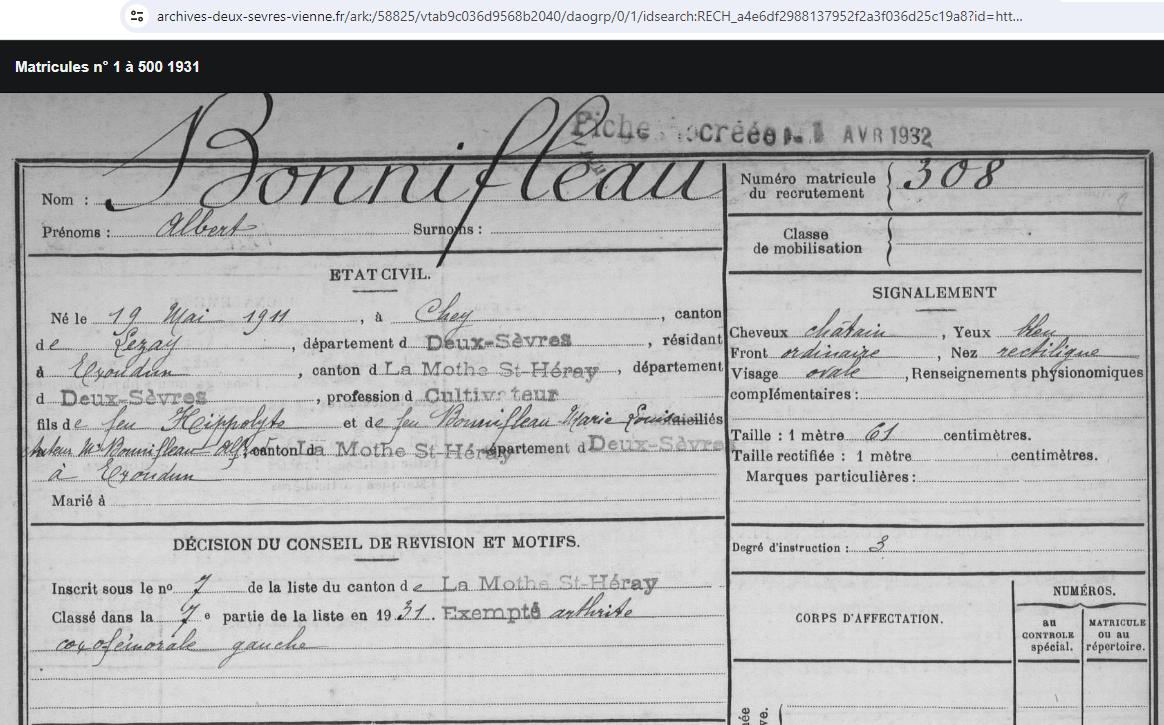 archives-deux-sevres-vienne.fr/ark:/58825/vtab9c036d9568b2040/daogrp/0/1/idsearch:RECH_a4e6df2988137952f2a3f036d25c19a8?id=htt...
Matricules n° 1 à 500 1931
Fiche créée 1 AVR 1932
Nom : Bonnifleau
Prénoms : Albert Surnoms :
ETAT CIVIL.
Né le 19 Mai 1911, à Chey, canton
de Lezay, département d Deux-Sèvres, résidant
à Exoudun, canton d La Mothe St-Héray, département
d Deux-Sèvres, profession d Cultivateur
fils de feu Hippolyte et de feu Bonnifleau Marie Louise domiciliés
tuteur Mr Bonnifleau canton d La Mothe St-Héray département d Deux-Sèvres
à Exoudun
Marié à
DÉCISION DU CONSEIL DE REVISION ET MOTIFS.
Inscrit sous le no 7 de la liste du canton de La Mothe St-Héray
Classé dans la 7e partie de la liste en 1931. Exempté arthrite
coxofémorale gauche
Numéro matricule
du recrutement 308
Classe
de mobilisation
SIGNALEMENT
Cheveux châtain, Yeux bleu
Front ordinaire, Nez rectiligne
Visage ovale, Renseignements physionomiques
complémentaires :
Taille : 1 mètre 61 centimètres.
Taille rectifiée : 1 mètre centimètres.
Marques particulières :
Degré d'instruction : 3
CORPS D'AFFECTATION.
NUMÉROS.
au
CONTROLE
spécial.
MATRICULE
ou au
répertoire.